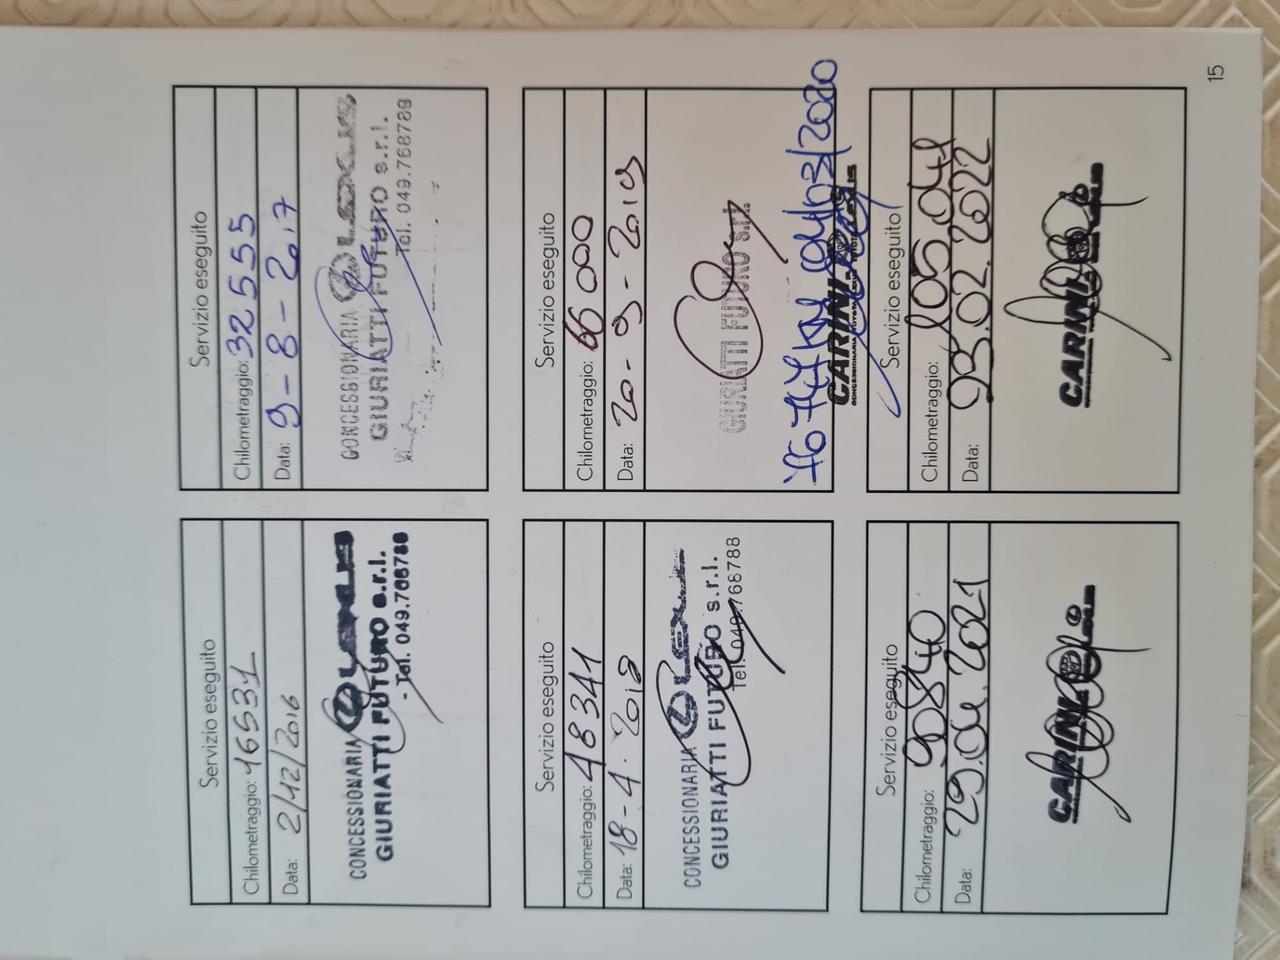 Servizio eseguito
Chilometraggio: 16531
Data: 2/12/2016
CONCESSIONARIA LEXUS
GIURIATTI FUTURO s.r.l.
- Tel. 049.768788
Servizio eseguito
Chilometraggio: 32555
Data: 9-8-2017
CONCESSIONARIA LEXUS
GIURIATTI FUTURO s.r.l.
Tel. 049.768789
Servizio eseguito
Chilometraggio: 48341
Data: 18-4-2018
CONCESSIONARIA LEXUS
GIURIATTI FUTURO s.r.l.
Tel. 049.768788
Servizio eseguito
Chilometraggio: 66000
Data: 20-9-2019
GIURIATTI FUTURO s.r.l.
04/03/2020
CARINI
Servizio eseguito
Chilometraggio: 90840
Data: 29.01.2021
CARINI
Servizio eseguito
Chilometraggio: 105.041
Data: 03.02.2022
CARINI
15